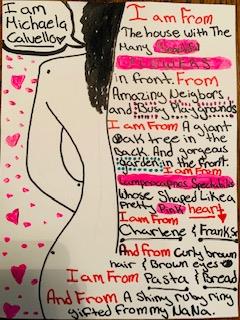 I am
Michaela
Calvello
I am From
The house with The
Many
in front. From
Amazing Neigbors
and Busy Playgrounds
I am From A giant
Oak tree in the
back. And gorgeous
garden in the front.
I am From
whose Shaped Like a
Pretty Pink heart
I am From
Charlene & Frank
And From Curly brown
hair & Brown eyes
I am From Pasta & Bread
And From A Shiny ruby ring
gifted from my NaNa.